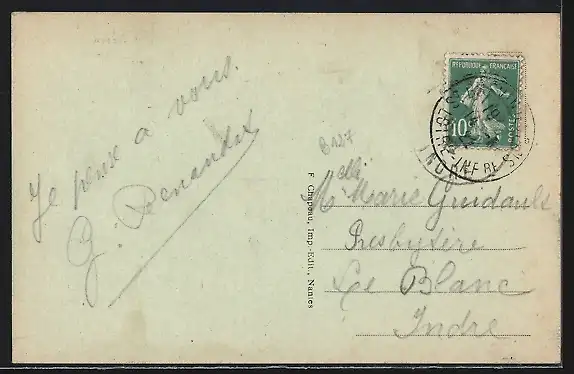 Je pense a vous
G. Renaudix
B 127
F. Chapeau, Imp.-Edit., Nantes
RÉPUBLIQUE FRANÇAISE
10c
POSTES
LOIRE-INFRE
Melle Marie Guidault
Presbytère
Le Blanc
Indre